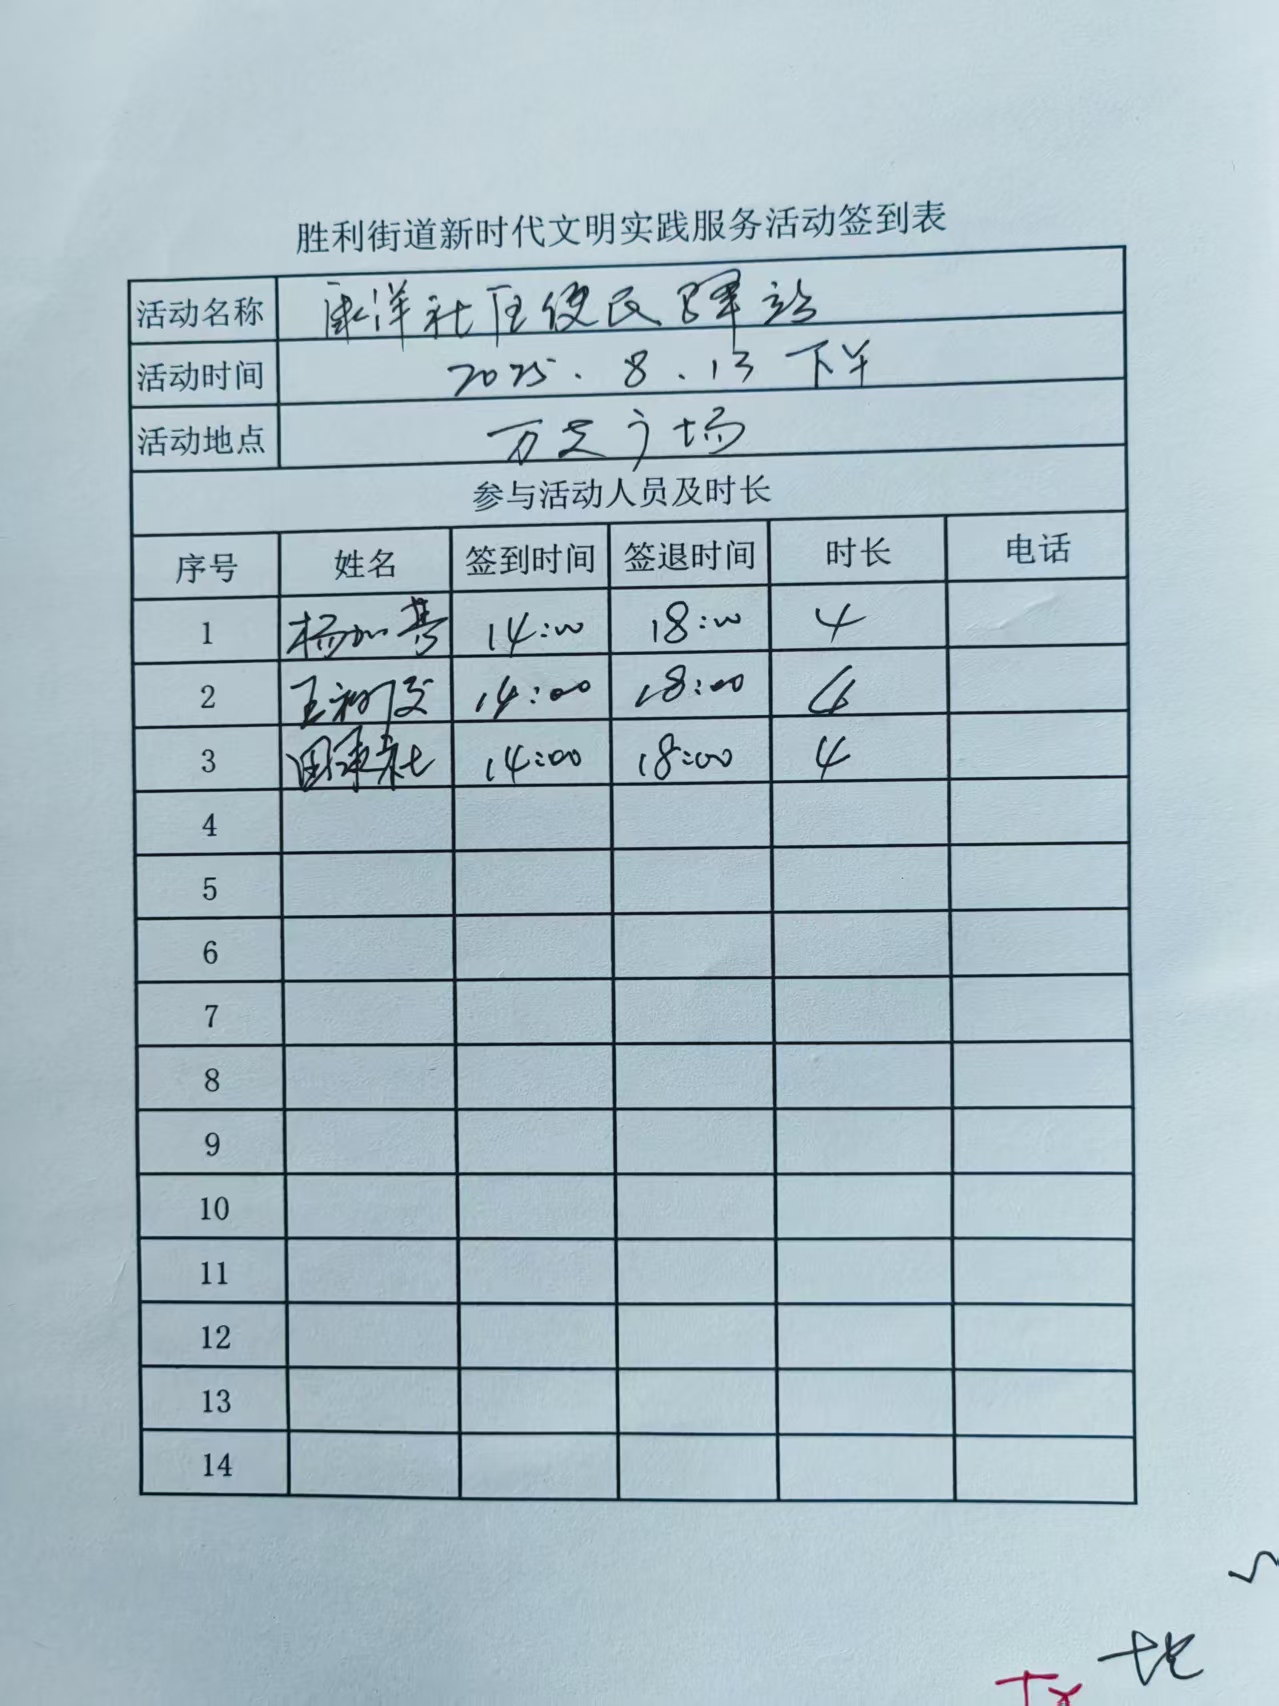 胜利街道新时代文明实践服务活动签到表
活动名称 康洋社区便民驿站
活动时间 2025.8.13 下午
活动地点 万达广场
参与活动人员及时长
序号 姓名 签到时间 签退时间 时长 电话
1 14:00 18:00 4
2 14:00 18:00 4
3 14:00 18:00 4
4
5
6
7
8
9
10
11
12
13
14